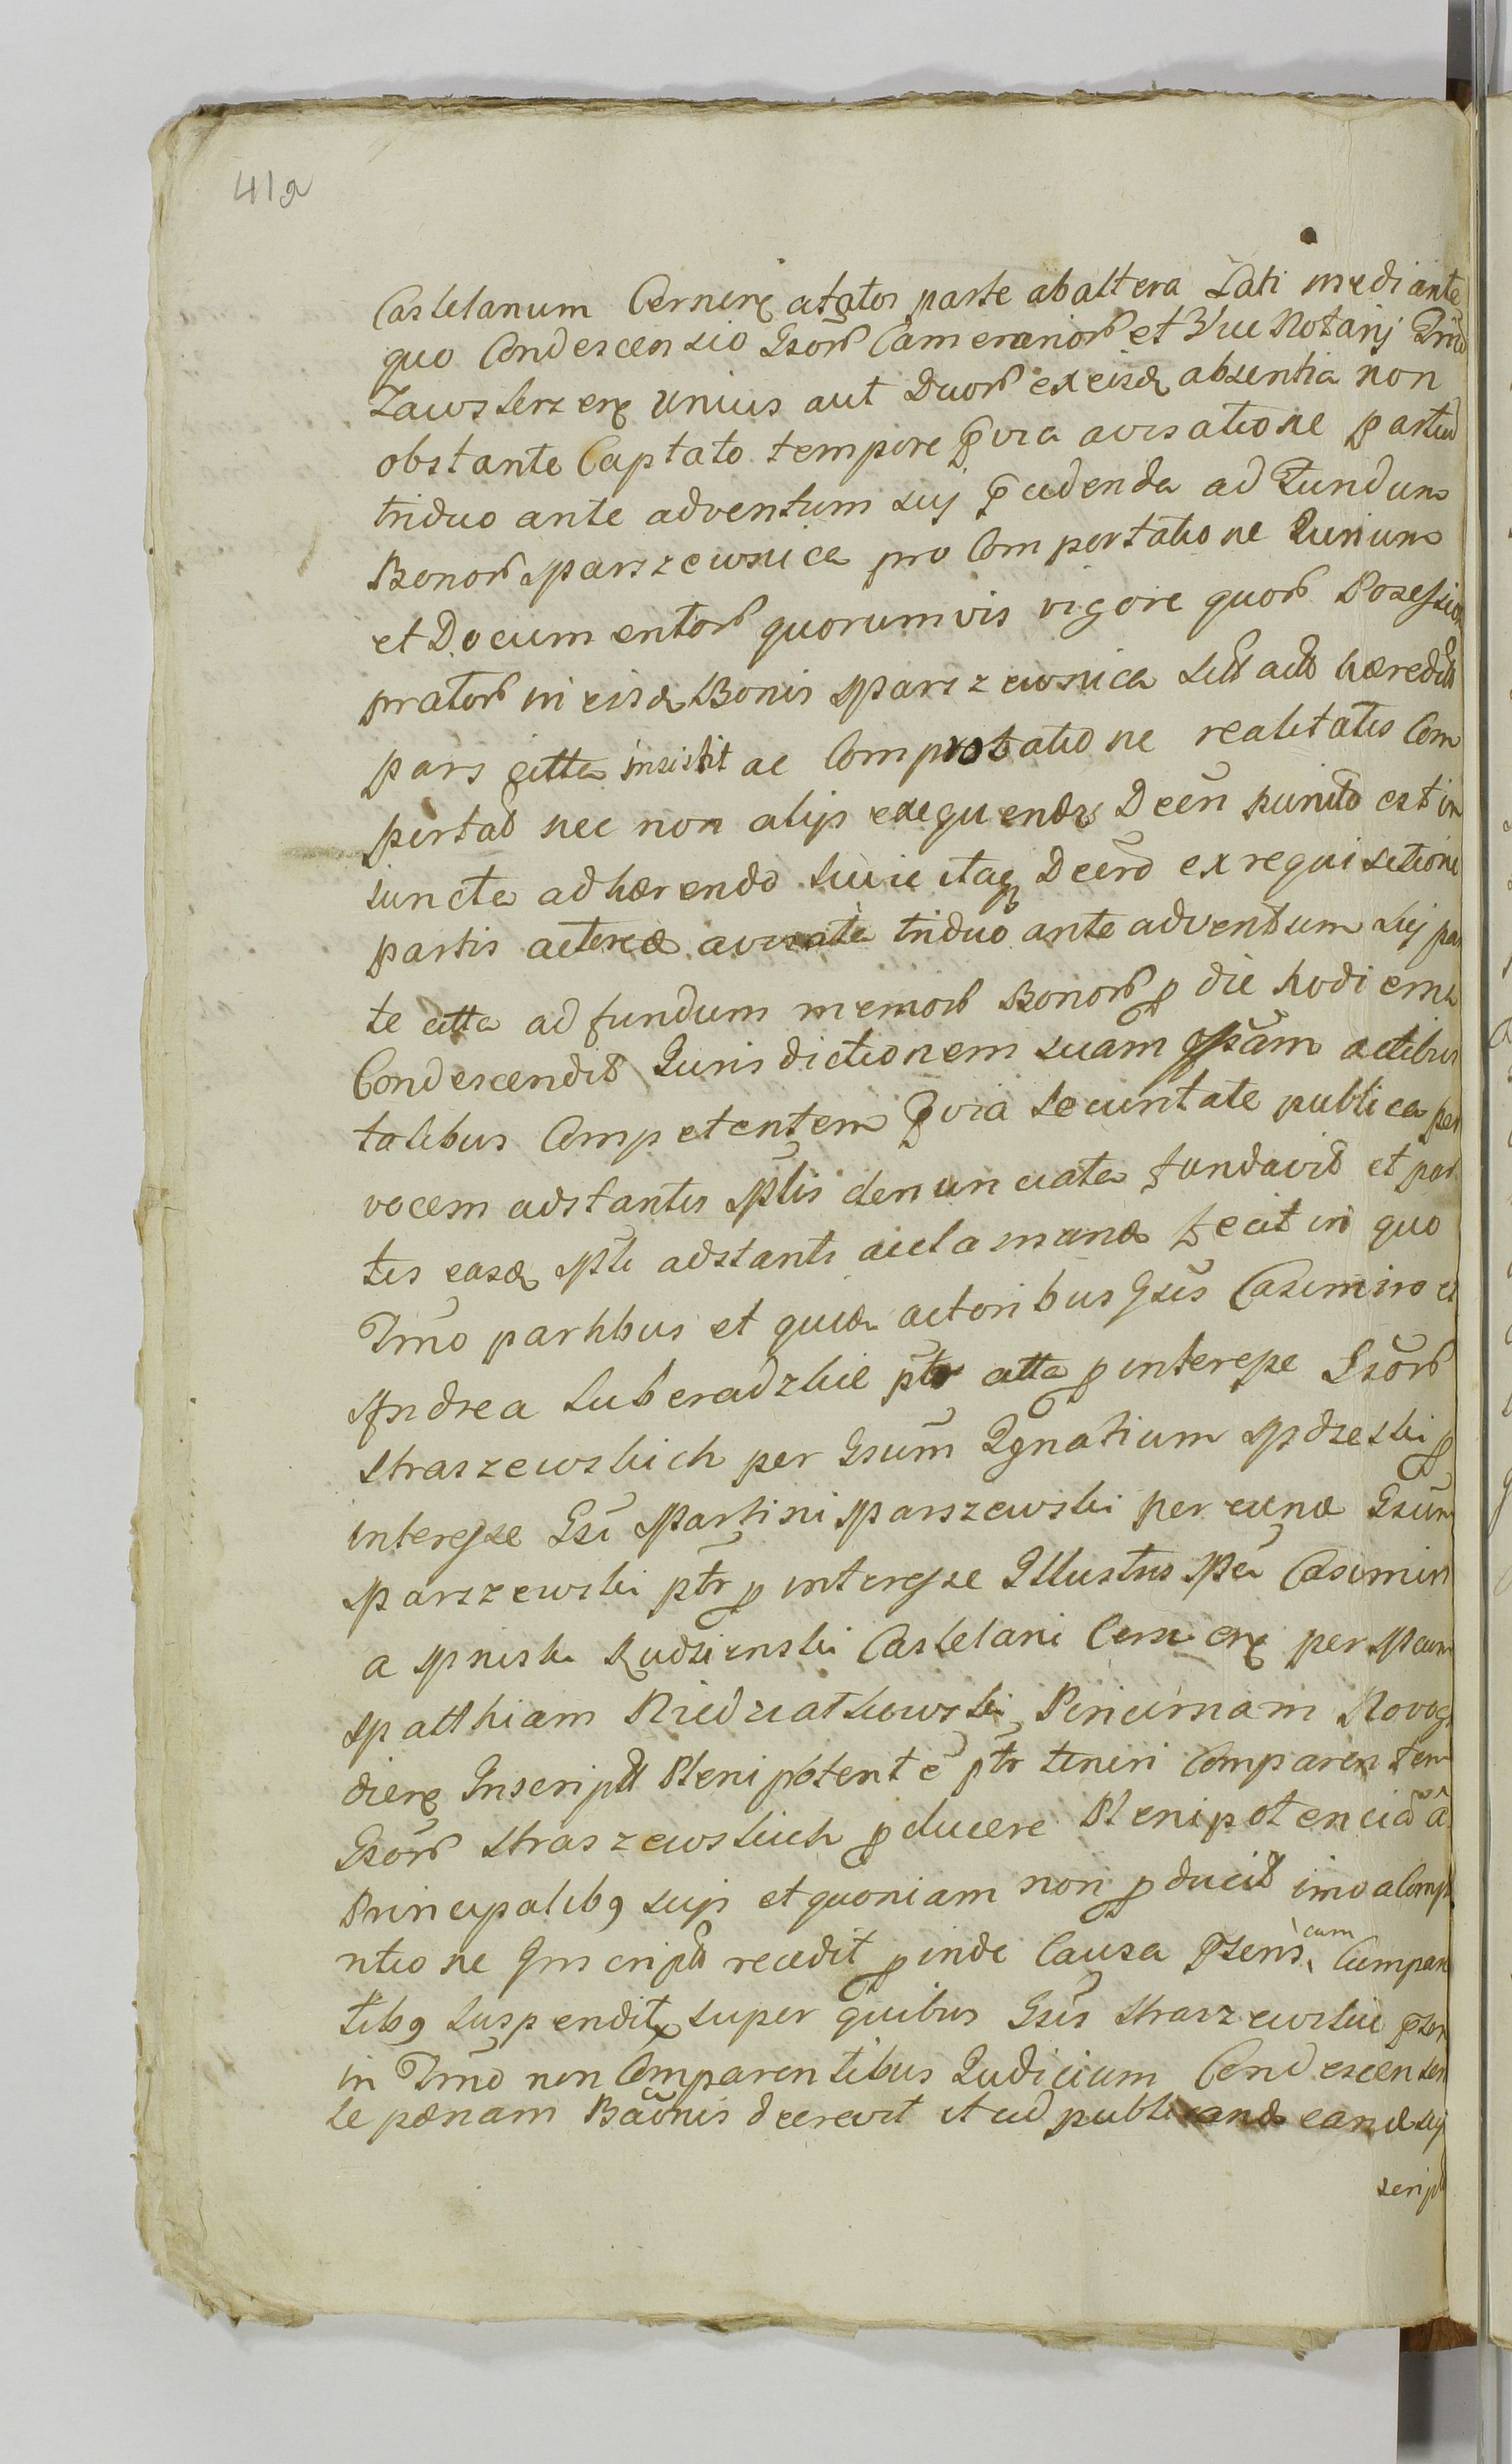 41a
Castelanum Cernen atatos parte ab altera Lati mediante
quo Condescensio Gsorū Camerariorū et Vice Notarij Trrō
Zawskrzen unius aut Duorū ex eisd absentia non
obstante Captato tempore p̄via avisatione partiū
triduo ante adventum sui p̄cedenda ad Fundum
Bonorū Marszewnica pro Comportatione Iurium
et Documentorū quorumvis vigore quorū Possession
pratorū in eisd Bonis Marszewnica
pars citta insistit ac Comprobatione realitatis Com
portat nec non alijs exequendis Decrt est in
iuncta adhærendo huic itaq Decrō ex requisitione
partis actoreæ avisata triduo ante adventum sui par
te citta ad fundum memorū Bonorū p die hodierna
Condescendit Iurisdictionem suam psam actibus
talibus Competentem p̄via securitate publica per
vocem adstantis Mlis denunciata fundavit et par
tes easd Mli adstanti acclamand fecit in quo
Trmō partibus et quid actoribus Gsis Casimiro et
Andrea Luberadzkie ptr atta p interesse Gsorū
Straszewskich per Gsum Ignatium Mdzeski p
interesse Gsi Martini Marszewski per eund Gsum
Marszewski ptr p interesse Illustris Mci Casimiri
a Mnisk Rudzienski Castelani Cernen per Mcum
Matthiam Niedziałkowski Pincernam Novog
dien Inscript Plenipotentē ptr teneri Comparentem
Gsorū Straszewskich pducere Plenipotenciā ā
Principalibq suis et quoniam non pducit imo a Comp
ritione Inscripti recedit pinde Causa p̄sens cum Compar
tibq suspendit super quibus Gsis Straszewskie
in Trmō non Comparentibus Iudicium Condescenso
le pænam Bannis decrevit et ad publicand eand sui
script